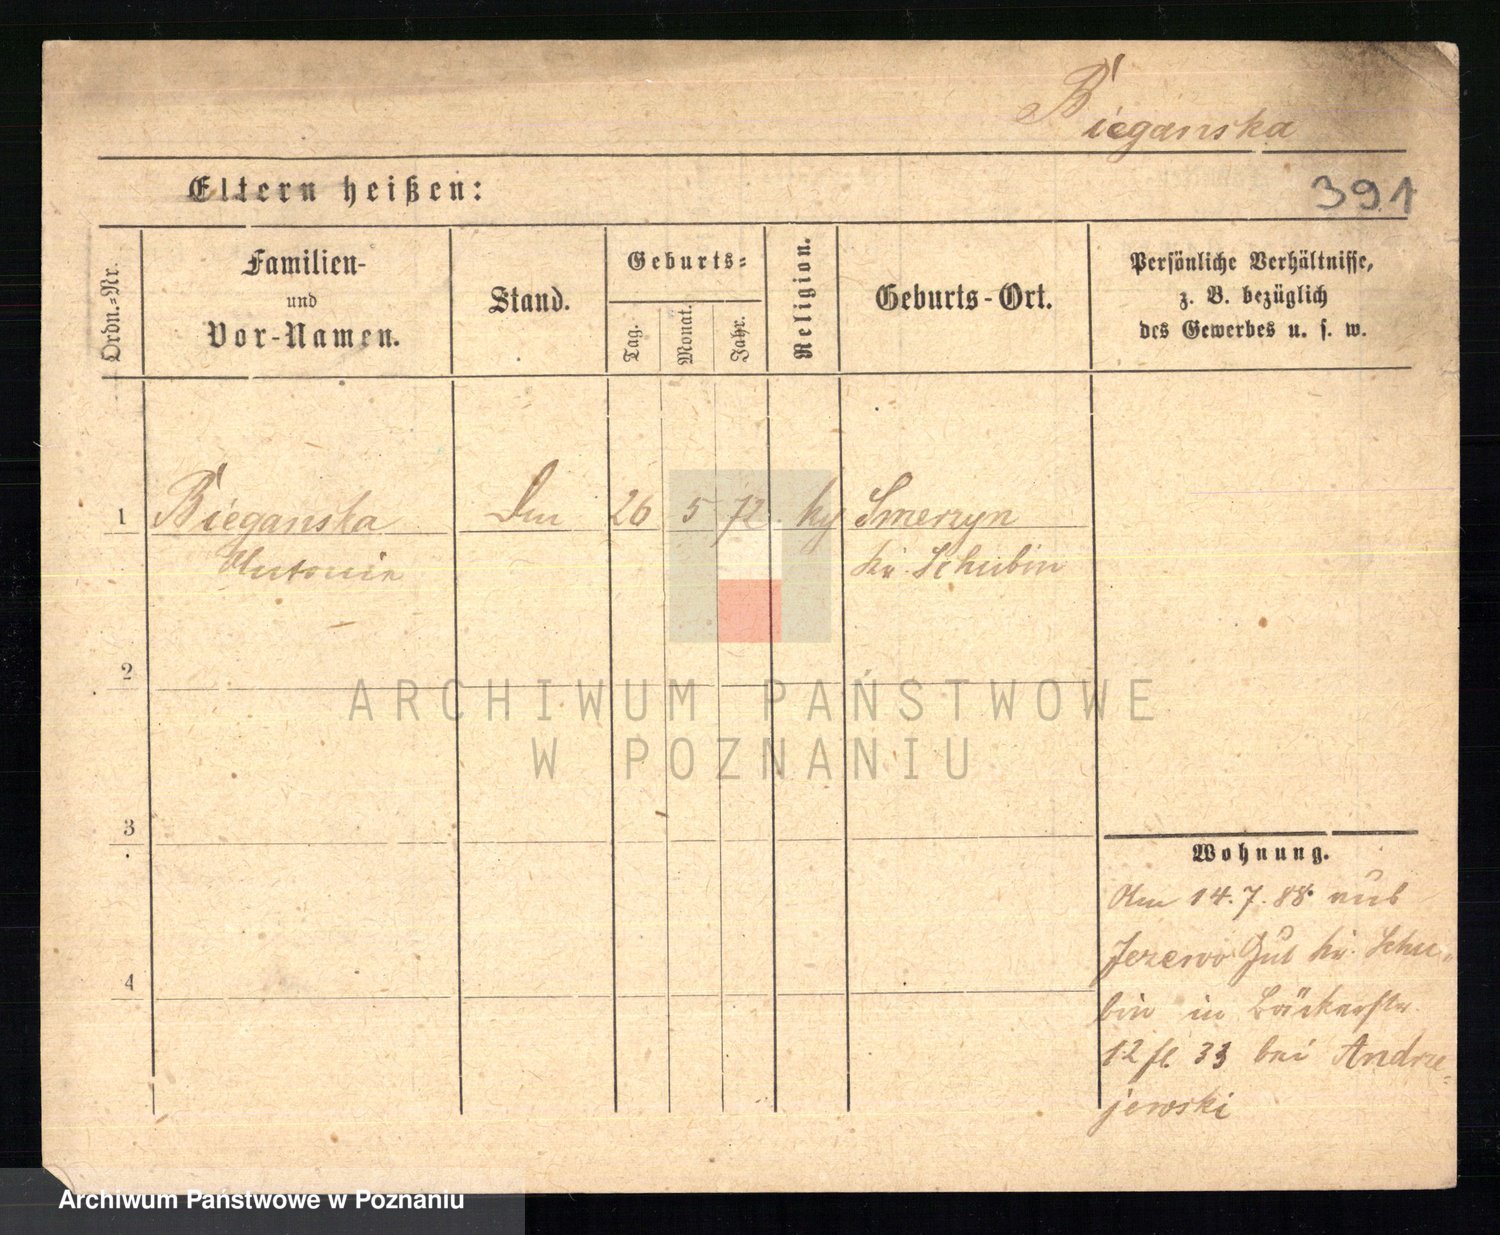 Bieganska
Eltern heißen:
391
Ordn.=Nr.
Familien-
und
Vor-Namen.
Stand.
Geburts=
Tag.
Monat.
Jahr.
Religion.
Geburts-Ort.
Persönliche Verhältnisse,
z. B. bezüglich
des Gewerbes u. s. w.
1 Bieganska 26 5 72 Smerzyn
Antonie Kr. Schubin
2
3
4
ARCHIWUM PAŃSTWOWE
W POZNANIU
Wohnung.
Am 14.7.88. aus
Jerzewo Gut Kr. Schu-
bin in Bäckerstr.
12 fl. 33 bei Andrze-
jewski
Archiwum Państwowe w Poznaniu